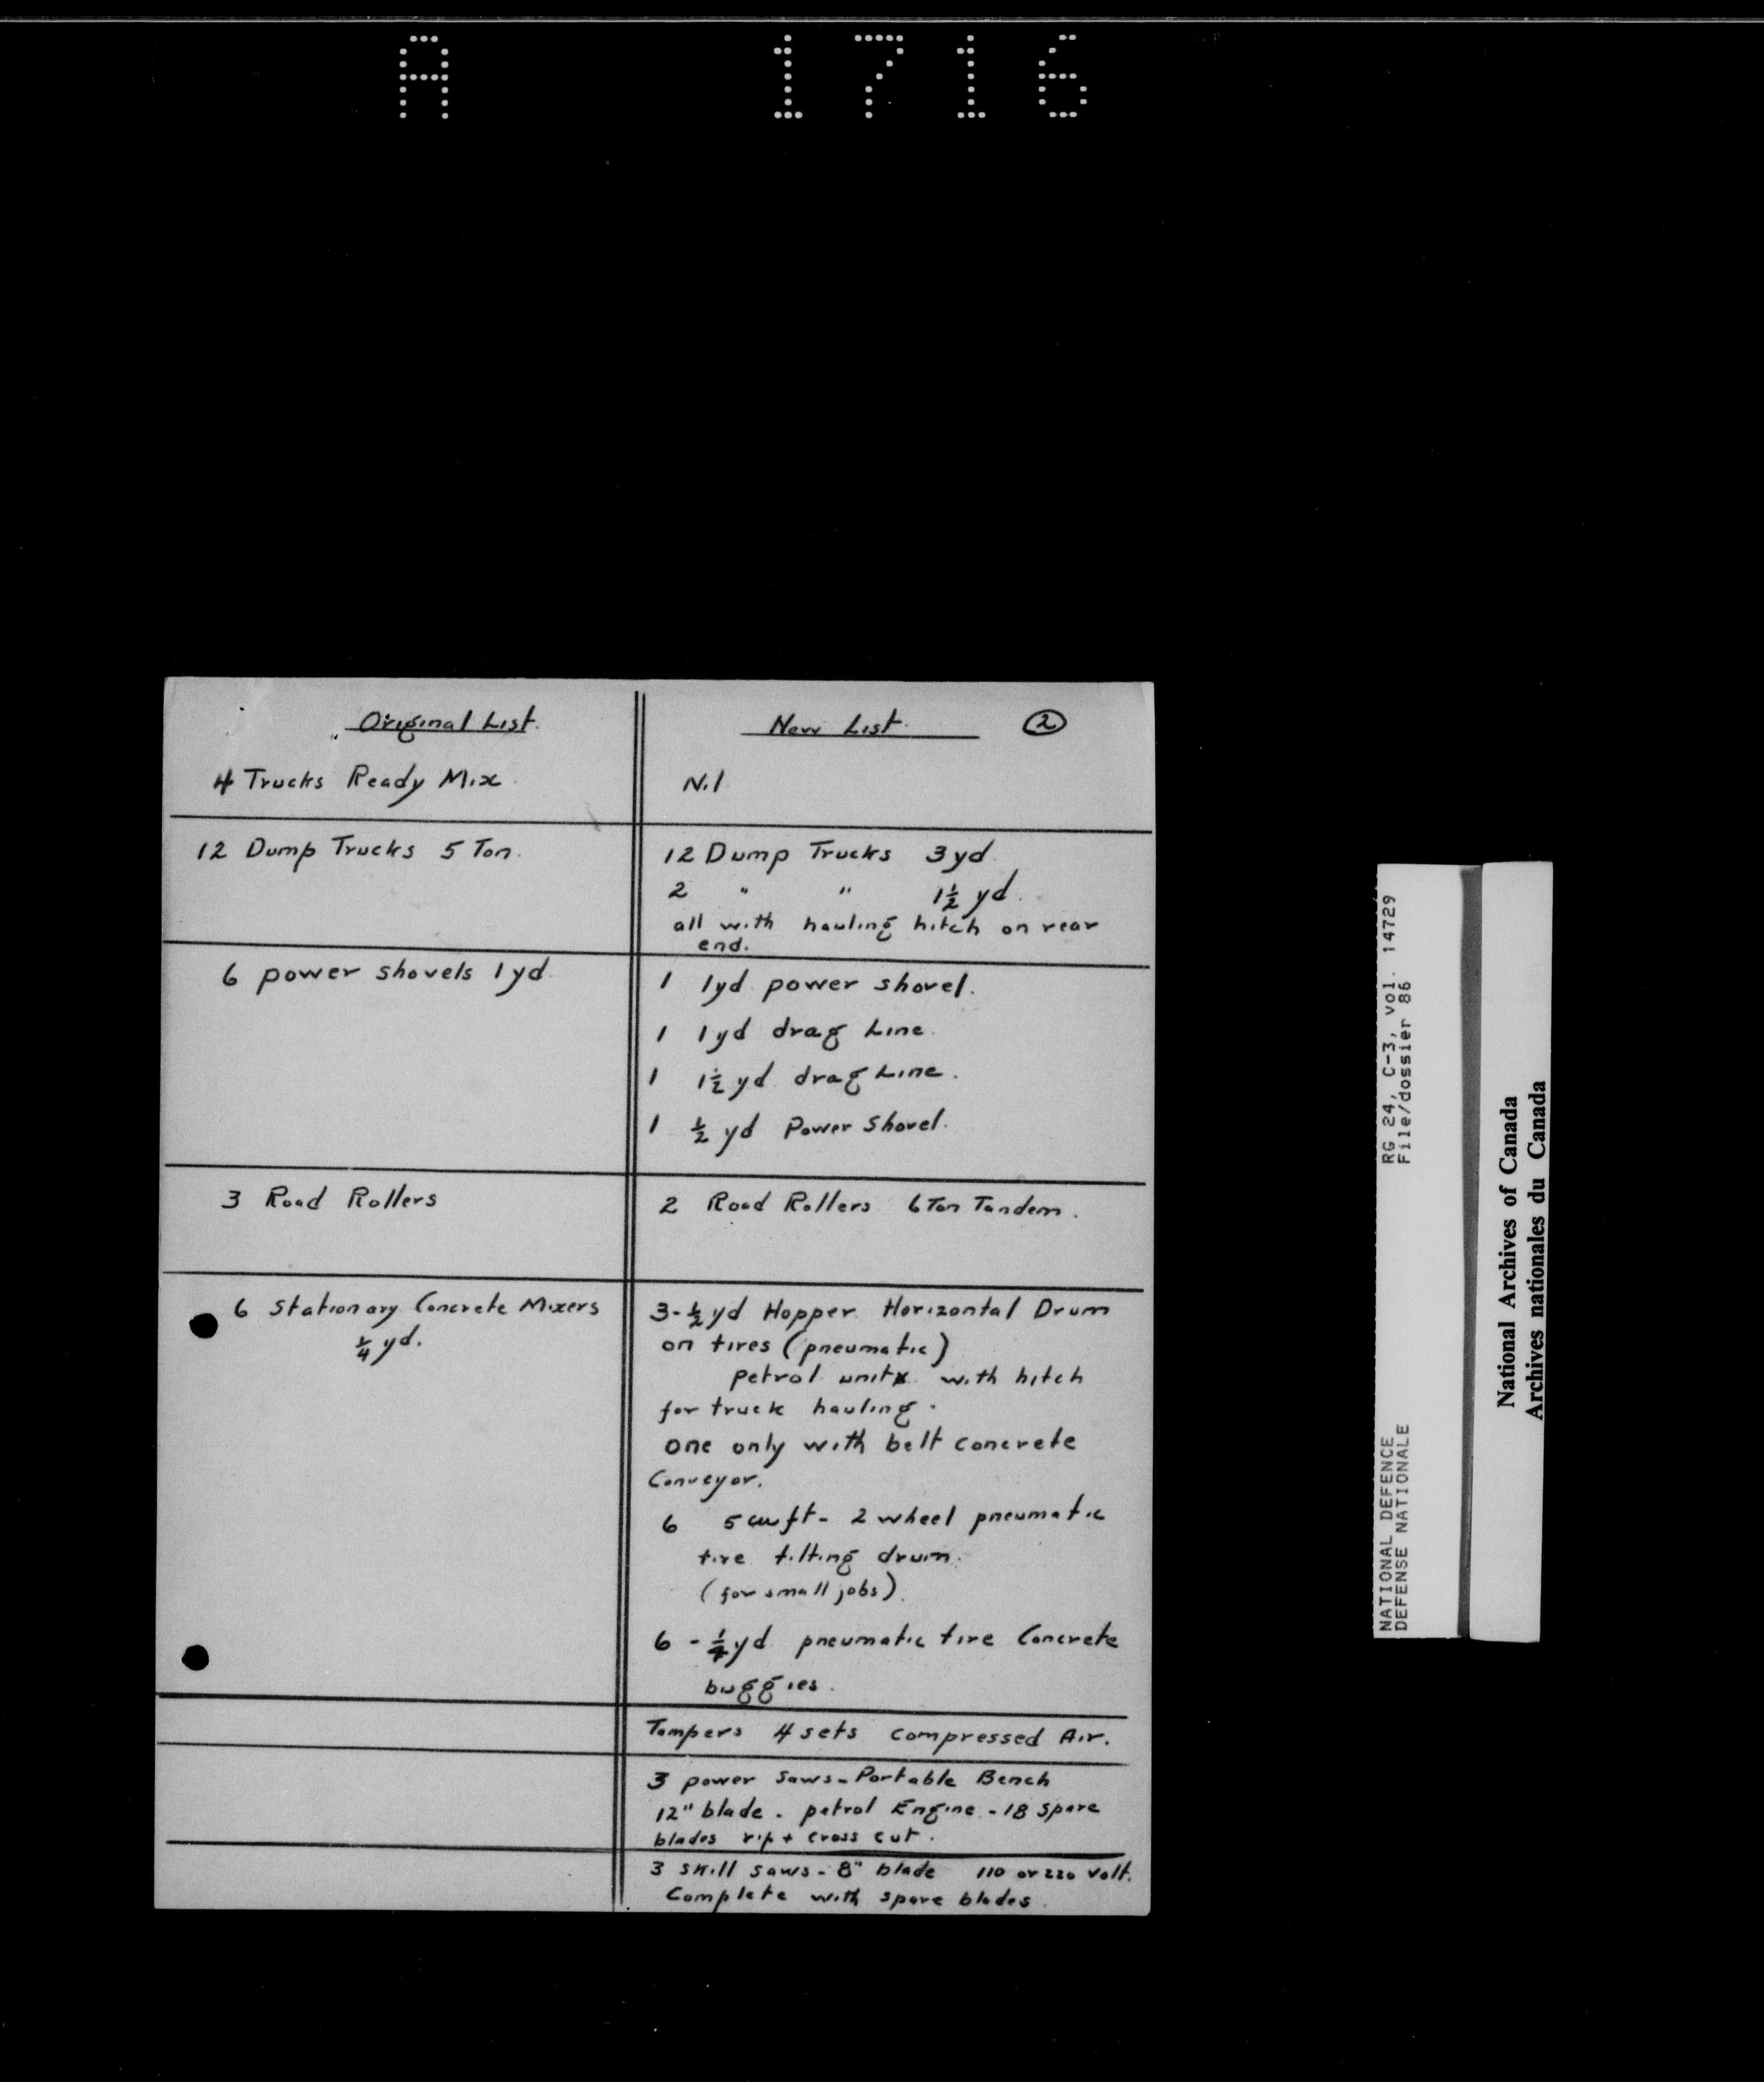 A 1716
Original List. New List. 2
4 Trucks Ready Mix. Nil
12 Dump Trucks 5 Ton. 12 Dump Trucks 3 yd.
2 " " 1½ yd.
all with hauling hitch on rear
end.
6 power shovels 1 yd 1 1 yd power shovel.
1 1 yd drag Line.
1 1½ yd drag Line.
1 ½ yd Power Shovel.
3 Road Rollers 2 Road Rollers 6 Ton Tandem.
6 Stationary Concrete Mixers 3-½ yd Hopper Horizontal Drum
¼ yd. on tires (pneumatic)
petrol unit with hitch
for truck hauling.
one only with belt concrete
Conveyor.
6 5 cu ft - 2 wheel pneumatic
tire tilting drum.
(for small jobs).
6 - ¼ yd pneumatic tire Concrete
buggies.
Tampers 4 sets compressed Air.
3 power saws - Portable Bench
12" blade - petrol Engine - 18 spare
blades rip + cross cut.
3 skill saws - 8" blade 110 or 220 volt.
Complete with spare blades.
NATIONAL DEFENCE RG 24, C-3, vol. 14729
DEFENSE NATIONALE File/dossier 86
National Archives of Canada
Archives nationales du Canada